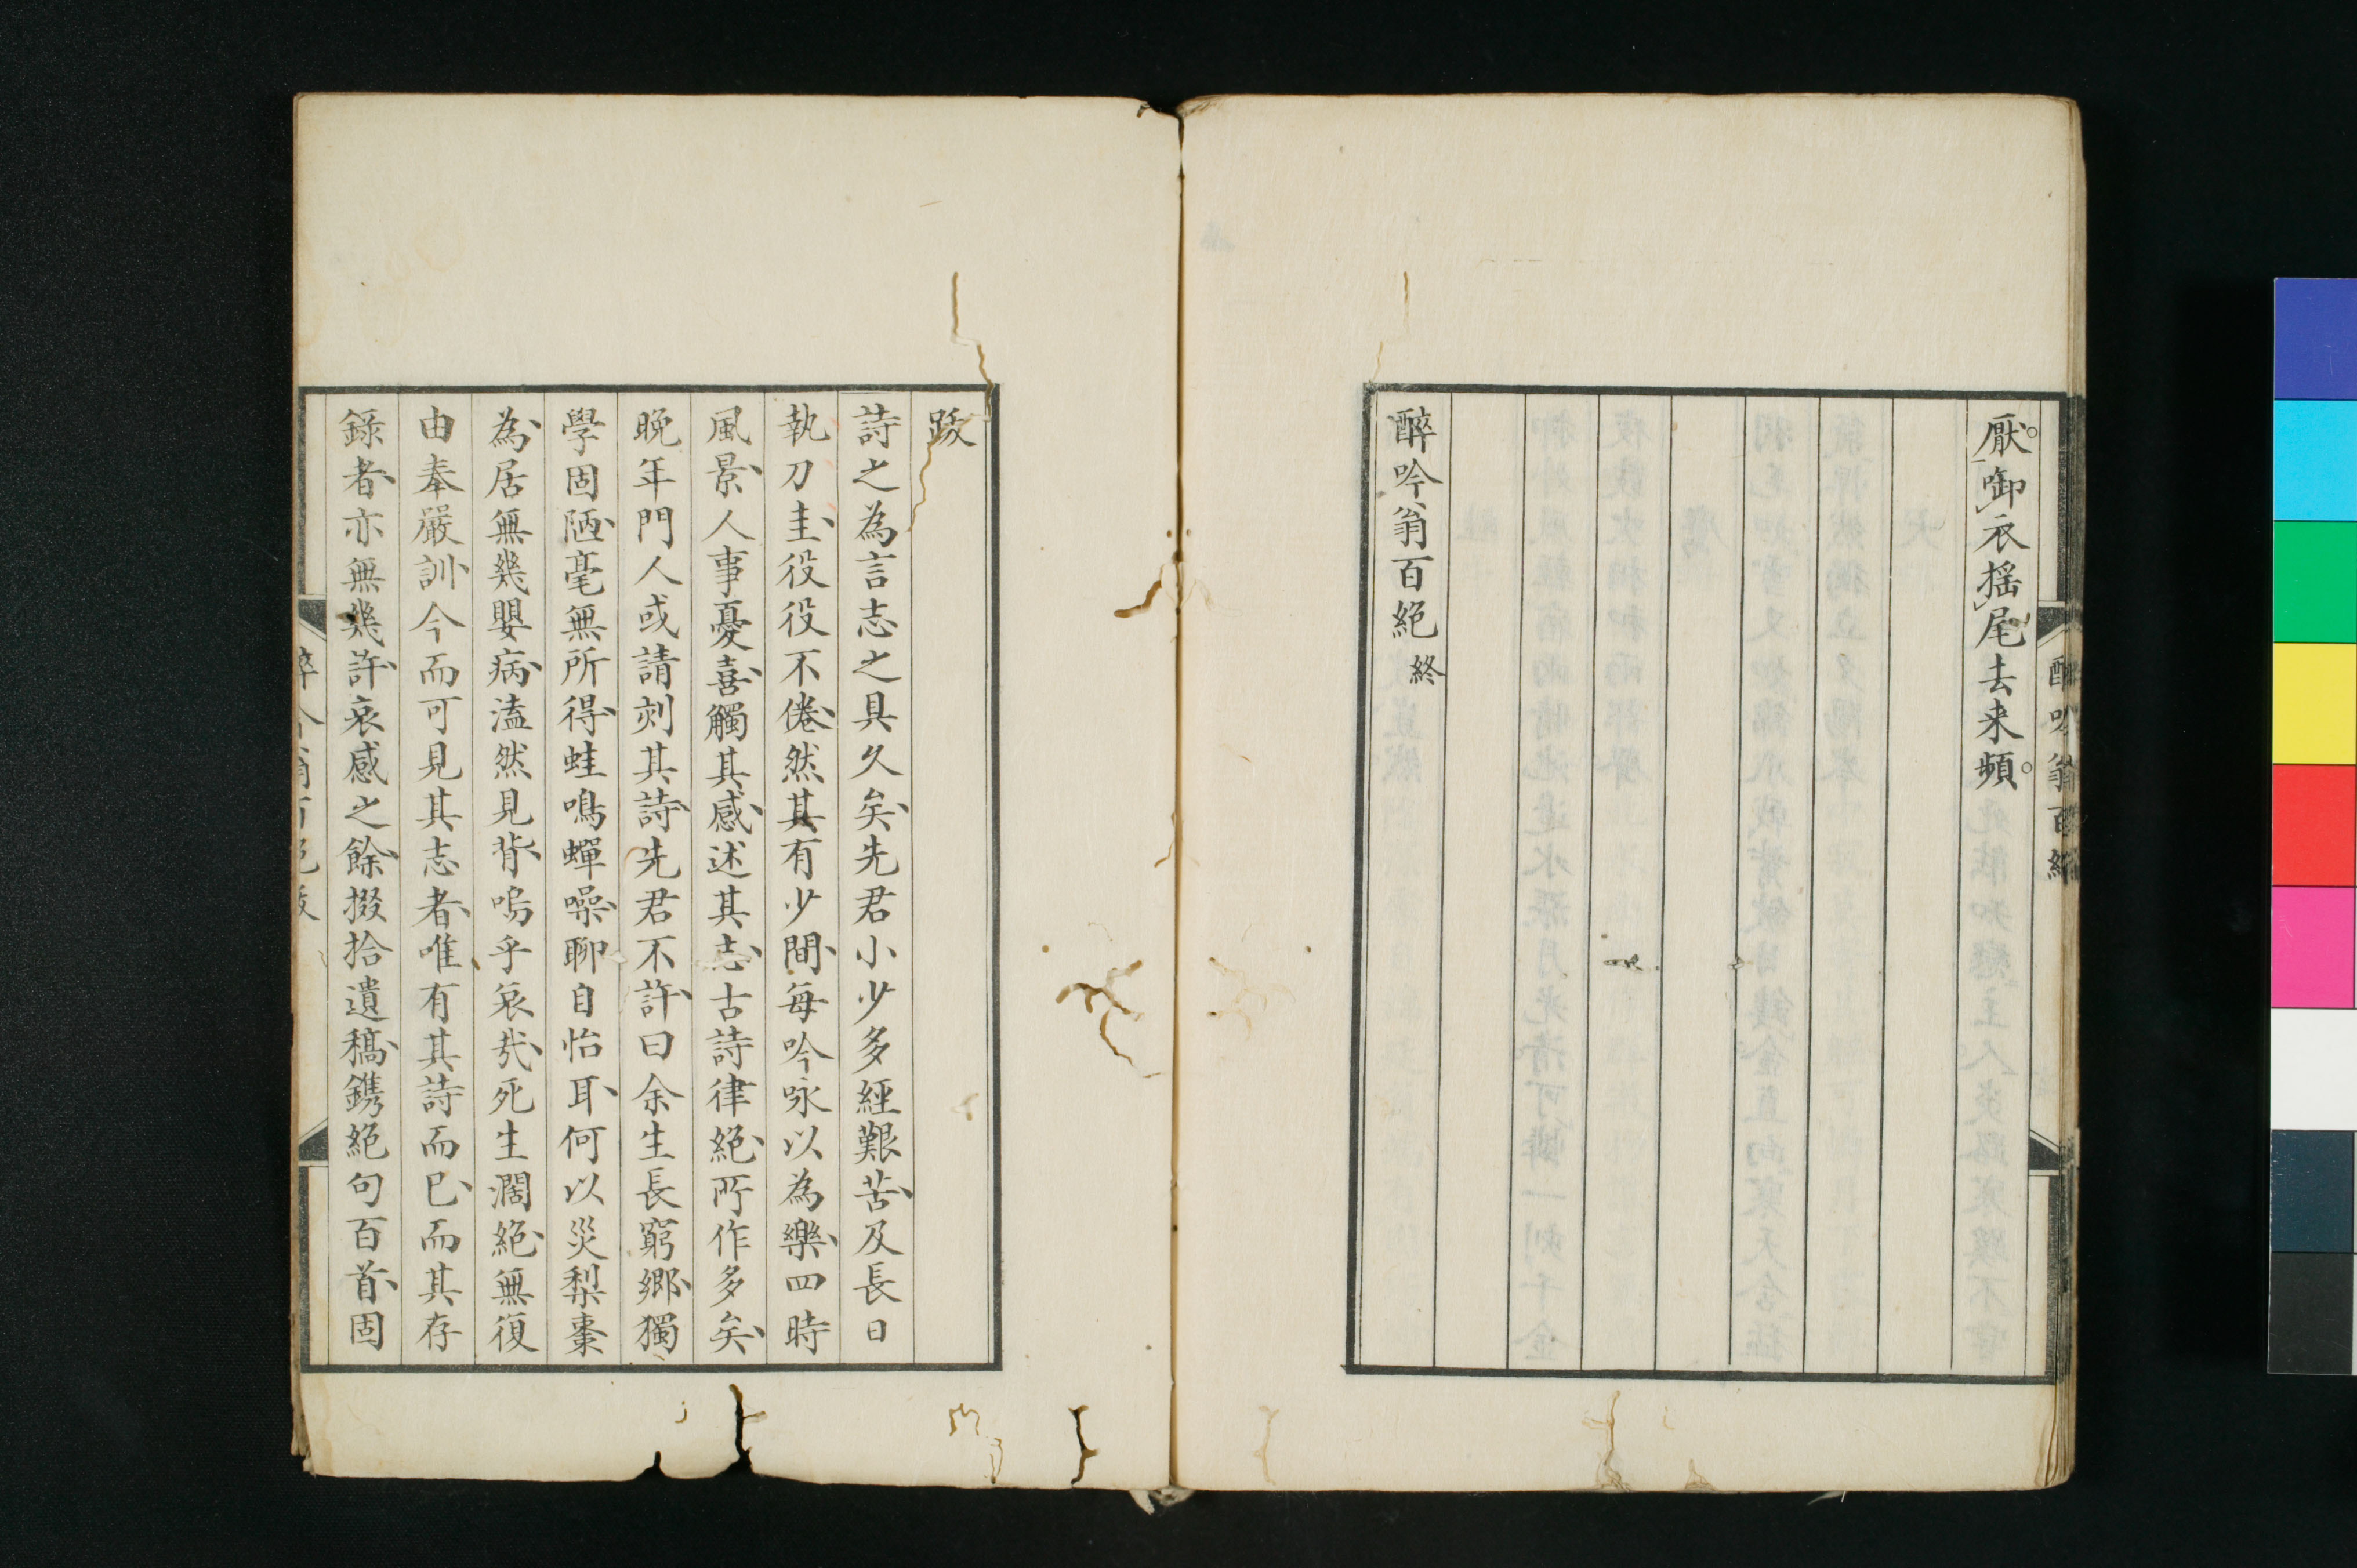 厭啣衣揺尾去来頻
醉吟翁百絶終
醉吟翁百絶
跋
詩之為言志之具久矣先君小少多經艱苦及長日
執刀圭役役不倦然其有少間毎吟咏以為樂四時
風景人事憂喜觸其感述其志古詩律絶所作多矣
晩年門人或請刻其詩先君不許曰余生長窮郷獨
學固陋毫無所得蛙鳴蟬噪聊自怡耳何以災梨棗
為居無幾嬰病溘然見背嗚乎哀哉死生濶絶無復
由奉嚴訓今而可見其志者唯有其詩而已而其存
錄者亦無幾許哀感之餘掇拾遺稿鐫絶句百首固